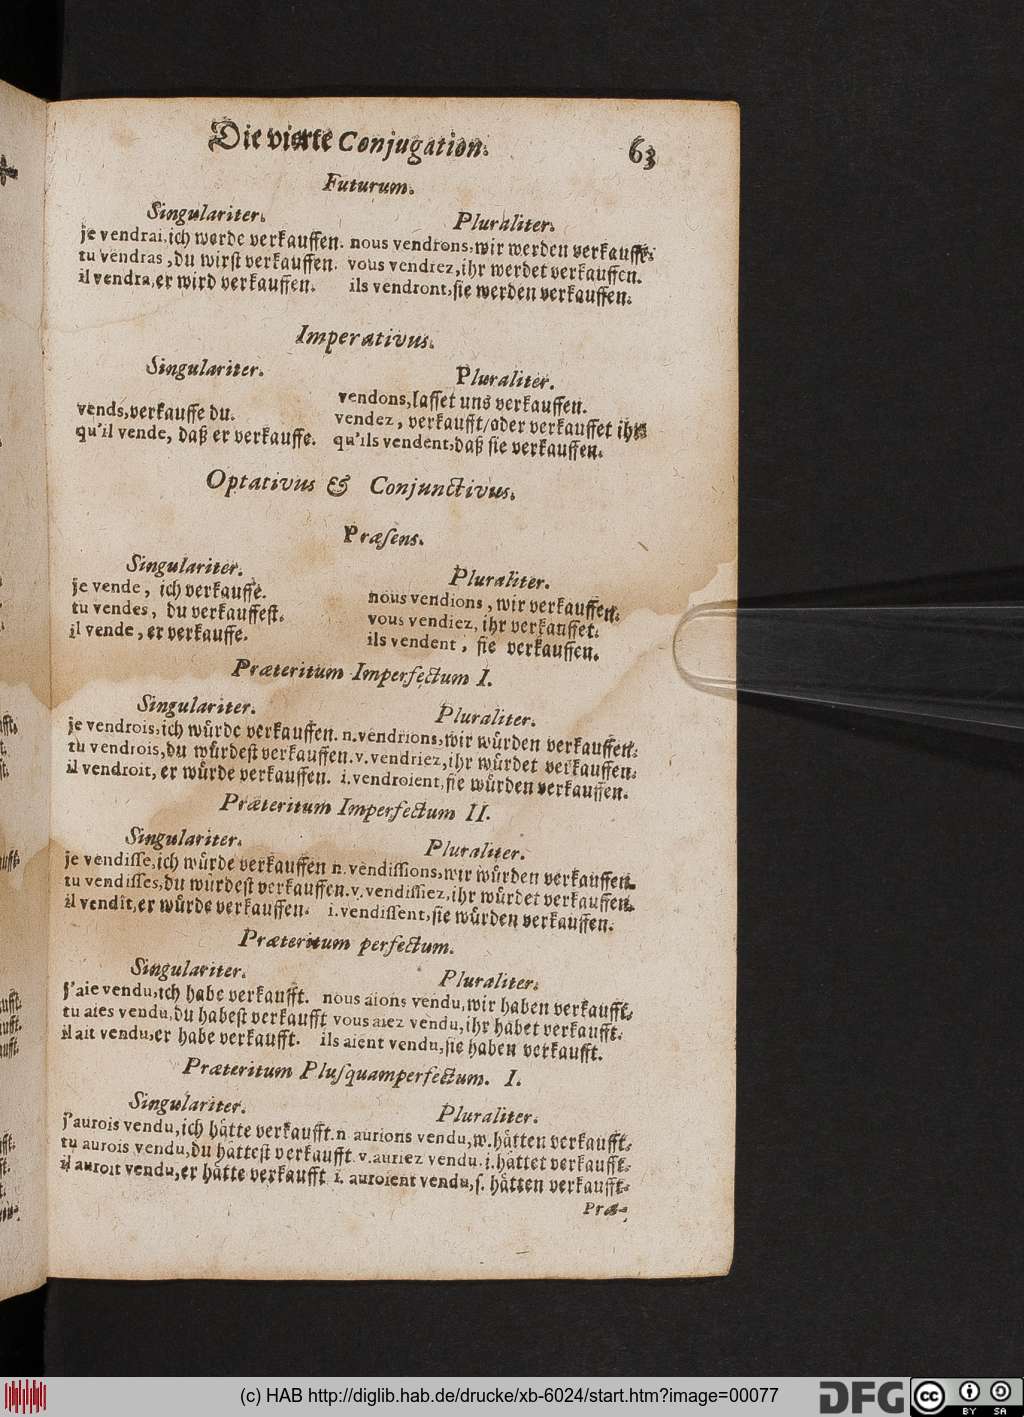 Die vierte Conjugation.
63
Futurum.
Singulariter.
Pluraliter.
je vendrai, ich werde verkauffen. nous vendrons, wir werden verkauffē.
tu vendras, du wirst verkauffen. vous vendrez, ihr werdet verkauffen.
il vendra, er wird verkauffen. ils vendront, sie werden verkauffen.
Imperativus.
Singulariter.
Pluraliter.
vendons, lasset uns verkauffen.
vends, verkauffe du. vendez, verkaufft/oder verkauffet ihr
qu'il vende, daß er verkauffe. qu'ils vendent, daß sie verkauffen.
Optativus & Conjunctivus.
Præsens.
Singulariter.
Pluraliter.
je vende, ich verkauffe. nous vendions, wir verkauffen.
tu vendes, du verkauffest. vous vendiez, ihr verkauffet.
il vende, er verkauffe. ils vendent, sie verkauffen.
Præteritum Imperfectum I.
Singulariter.
Pluraliter.
je vendrois, ich würde verkauffen. n. vendrions, wir würden verkauffen.
tu vendrois, du würdest verkauffen. v. vendriez, ihr würdet verkauffen.
il vendroit, er würde verkauffen. i. vendroient, sie würden verkauffen.
Præteritum Imperfectum II.
Singulariter.
Pluraliter.
je vendisse, ich würde verkauffen n. vendissions, wir würden verkauffen.
tu vendisses, du würdest verkauffen. v. vendissiez, ihr würdet verkauffen.
il vendît, er würde verkauffen. i. vendissent, sie würden verkauffen.
Præteritum perfectum.
Singulariter.
Pluraliter.
j'aie vendu, ich habe verkaufft. nous aions vendu, wir haben verkaufft.
tu aies vendu, du habest verkaufft vous aiez vendu, ihr habet verkaufft.
il ait vendu, er habe verkaufft. ils aient vendu, sie haben verkaufft.
Præteritum Plusquamperfectum. I.
Singulariter.
Pluraliter.
j'aurois vendu, ich hätte verkaufft. n. aurions vendu, w. hätten verkaufft.
tu aurois vendu, du hättest verkaufft. v. auriez vendu, i. hättet verkaufft.
il auroit vendu, er hätte verkaufft i. auroient vendu, s. hätten verkaufft.
Præ-
(c) HAB http://diglib.hab.de/drucke/xb-6024/start.htm?image=00077
DFG
cc
BY SA